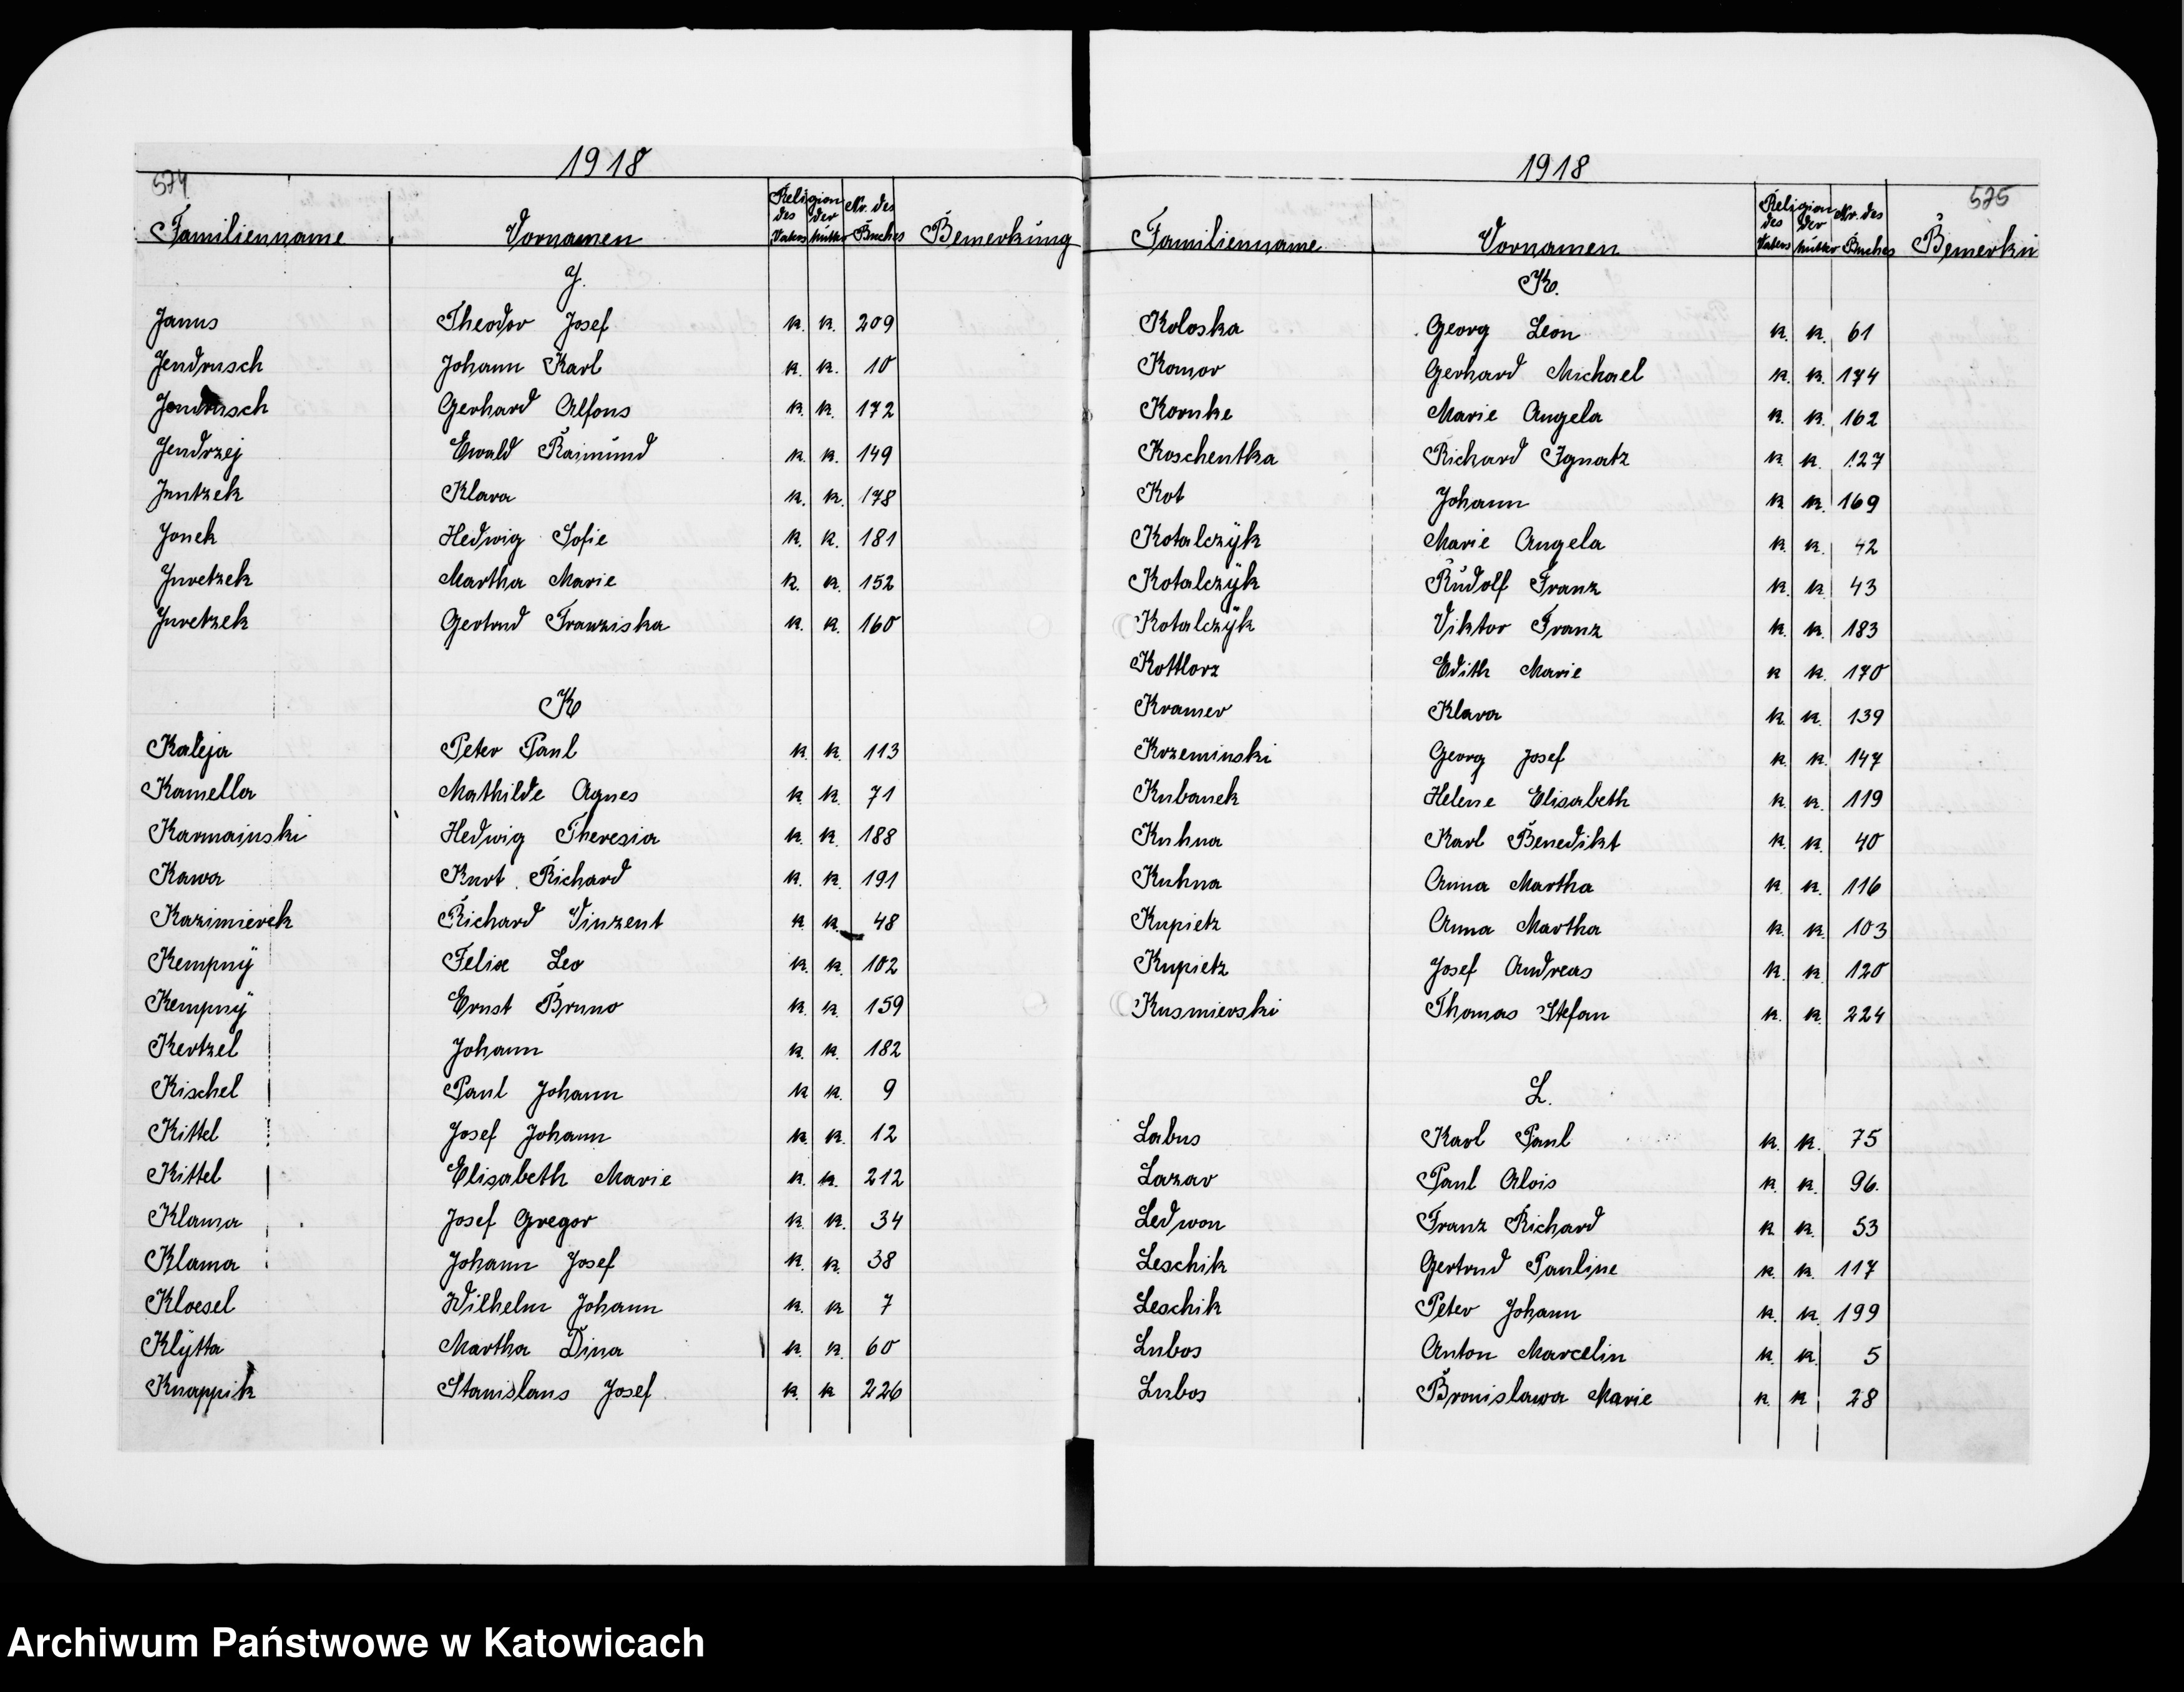 1918
574
Familienname Vornamen Religion des Vaters der Mutter Nr. des Buches Bemerkung
J.
Janus Theodor Josef k. k. 209
Jendrusch Johann Karl k. k. 10
Jendrusch Gerhard Alfons k. k. 172
Jendrzej Ewald Raimund k. k. 149
Jentzek Klara k. k. 178
Jonek Hedwig Sofie k. k. 181
Juretzek Martha Marie k. k. 152
Juretzek Gertrud Franziska k. k. 160
K
Kaleja Peter Paul k. k. 113
Kamella Mathilde Agnes k. k. 71
Karmainski Hedwig Theresia k. k. 188
Kawa Kurt Richard k. k. 191
Kazimierek Richard Vinzent k. k. 48
Kempnÿ Felix Leo k. k. 102
Kempnÿ Ernst Bruno k. k. 159
Kertzel Johann k. k. 182
Kischel Paul Johann k k. 9
Kittel Josef Johann k. k. 12
Kittel Elisabeth Marie k. k. 212
Klama Josef Gregor k. k. 34
Klama Johann Josef k. k. 38
Kloesel Wilhelm Johann k. k 7
Klÿtta Martha Dina k. k. 60
Knappik Stanislaus Josef k. k 226
1918
575
Familienname Vornamen Religion des Vaters der Mutter Nr. des Buches Bemerku
K.
Koloska Georg Leon k. k. 61
Komor Gerhard Michael k. k. 174
Kornke Marie Angela k. k. 162
Koschentka Richard Ignatz k. k. 127
Kot Johann k k. 169
Kotalczÿk Marie Angela k. k. 42
Kotalczÿk Rudolf Franz k. k 43
Kotalczÿk Viktor Franz k. k. 183
Kottlorz Edith Marie k k. 170
Kramer Klara k. k. 139
Krzeminski Georg Josef k. k. 147
Kubanek Helene Elisabeth k k. 119
Kuhna Karl Benedikt k. k. 40
Kuhna Anna Martha k k. 116
Kupietz Anna Martha k. k. 103
Kupietz Josef Andreas k. k 120
Kusmierski Thomas Stefan k. k. 224
L.
Labus Karl Paul k. k. 75
Lazar Paul Alois k. k. 96.
Ledwon Franz Richard k k. 53
Leschik Gertrud Pauline k. k. 117
Leschik Peter Johann k. k. 199
Lubos Anton Marcelin k. k. 5
Lubos Bronislawa Marie k. k 28
Archiwum Państwowe w Katowicach